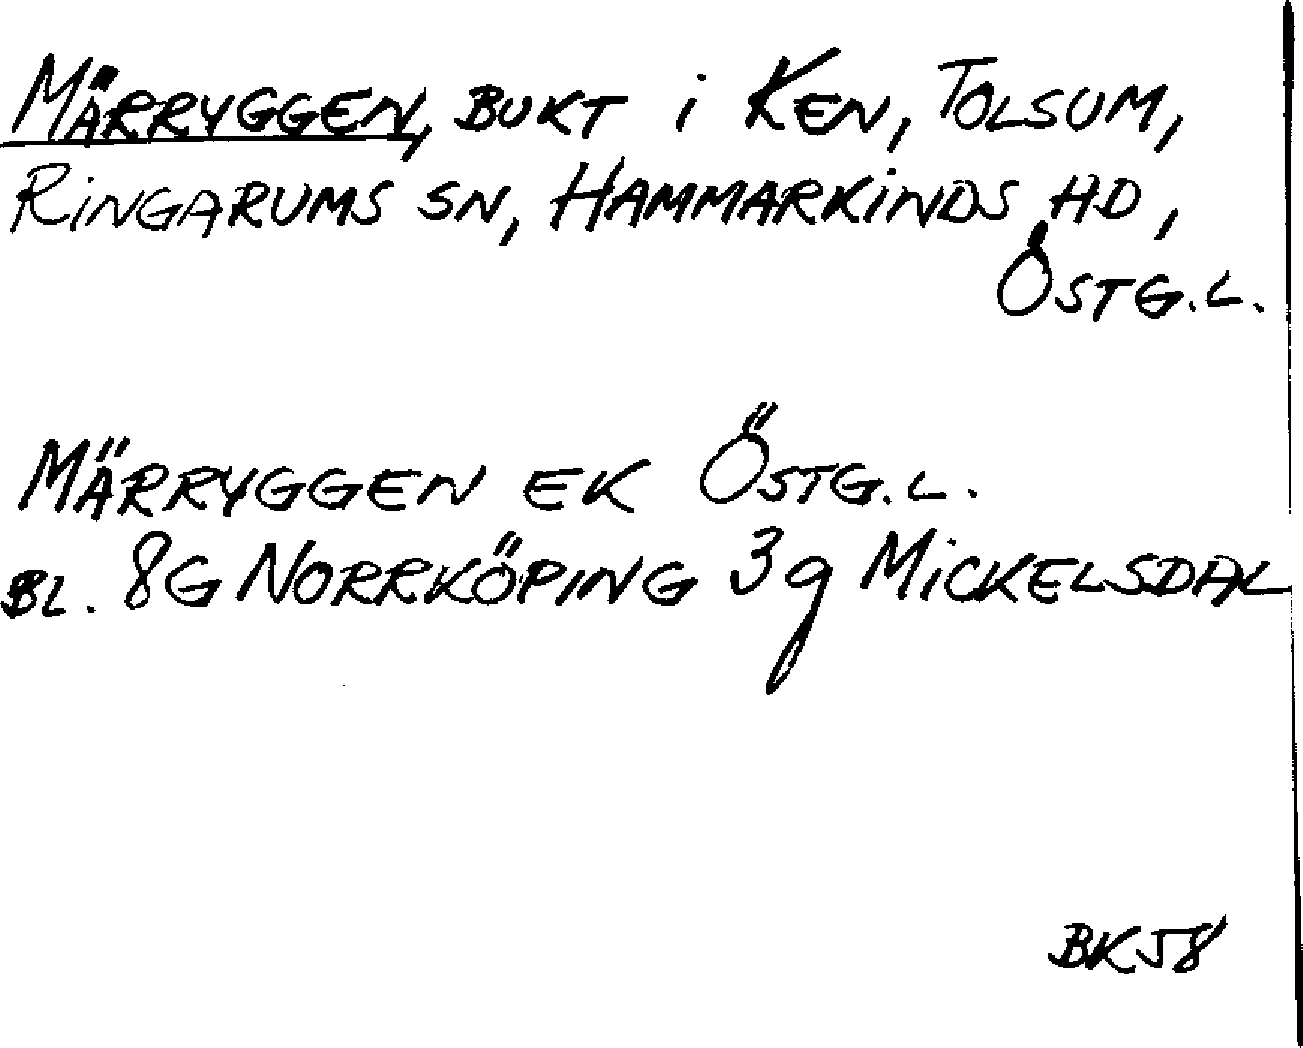 MÄRRYGGEN, BUKT i KEN, TOLSUM,
RINGARUMS SN, HAMMARKINDS HD,
ÖSTG.L.
MÄRRYGGEN EK ÖSTG.L.
BL. 8G NORRKÖPING 3g MICKELSDAL
BK58